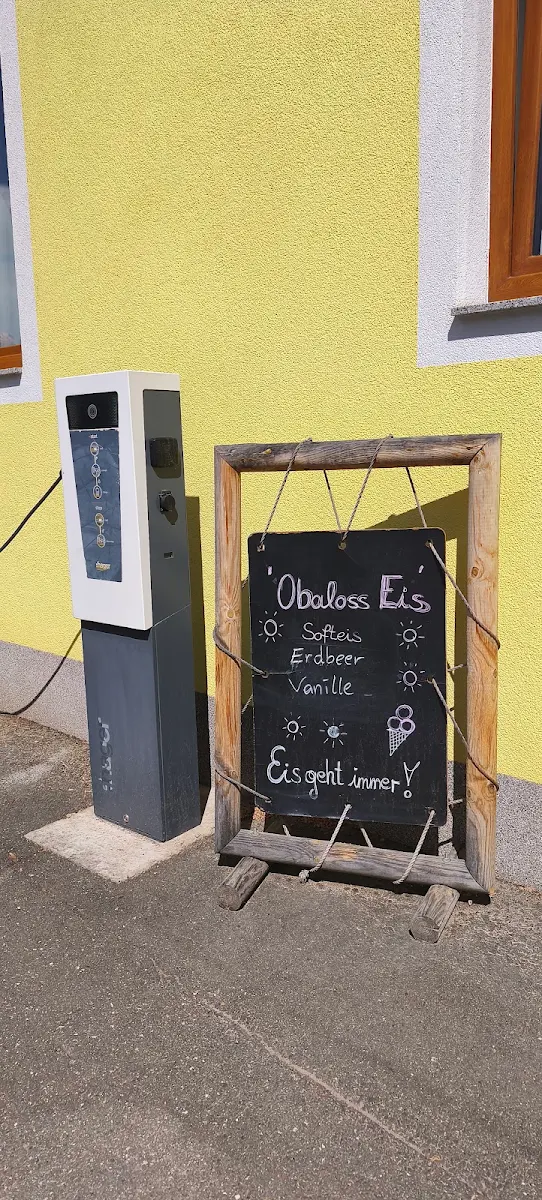 'Obaloss Eis'
Softeis
Erdbeer
Vanille
Eis geht immer!